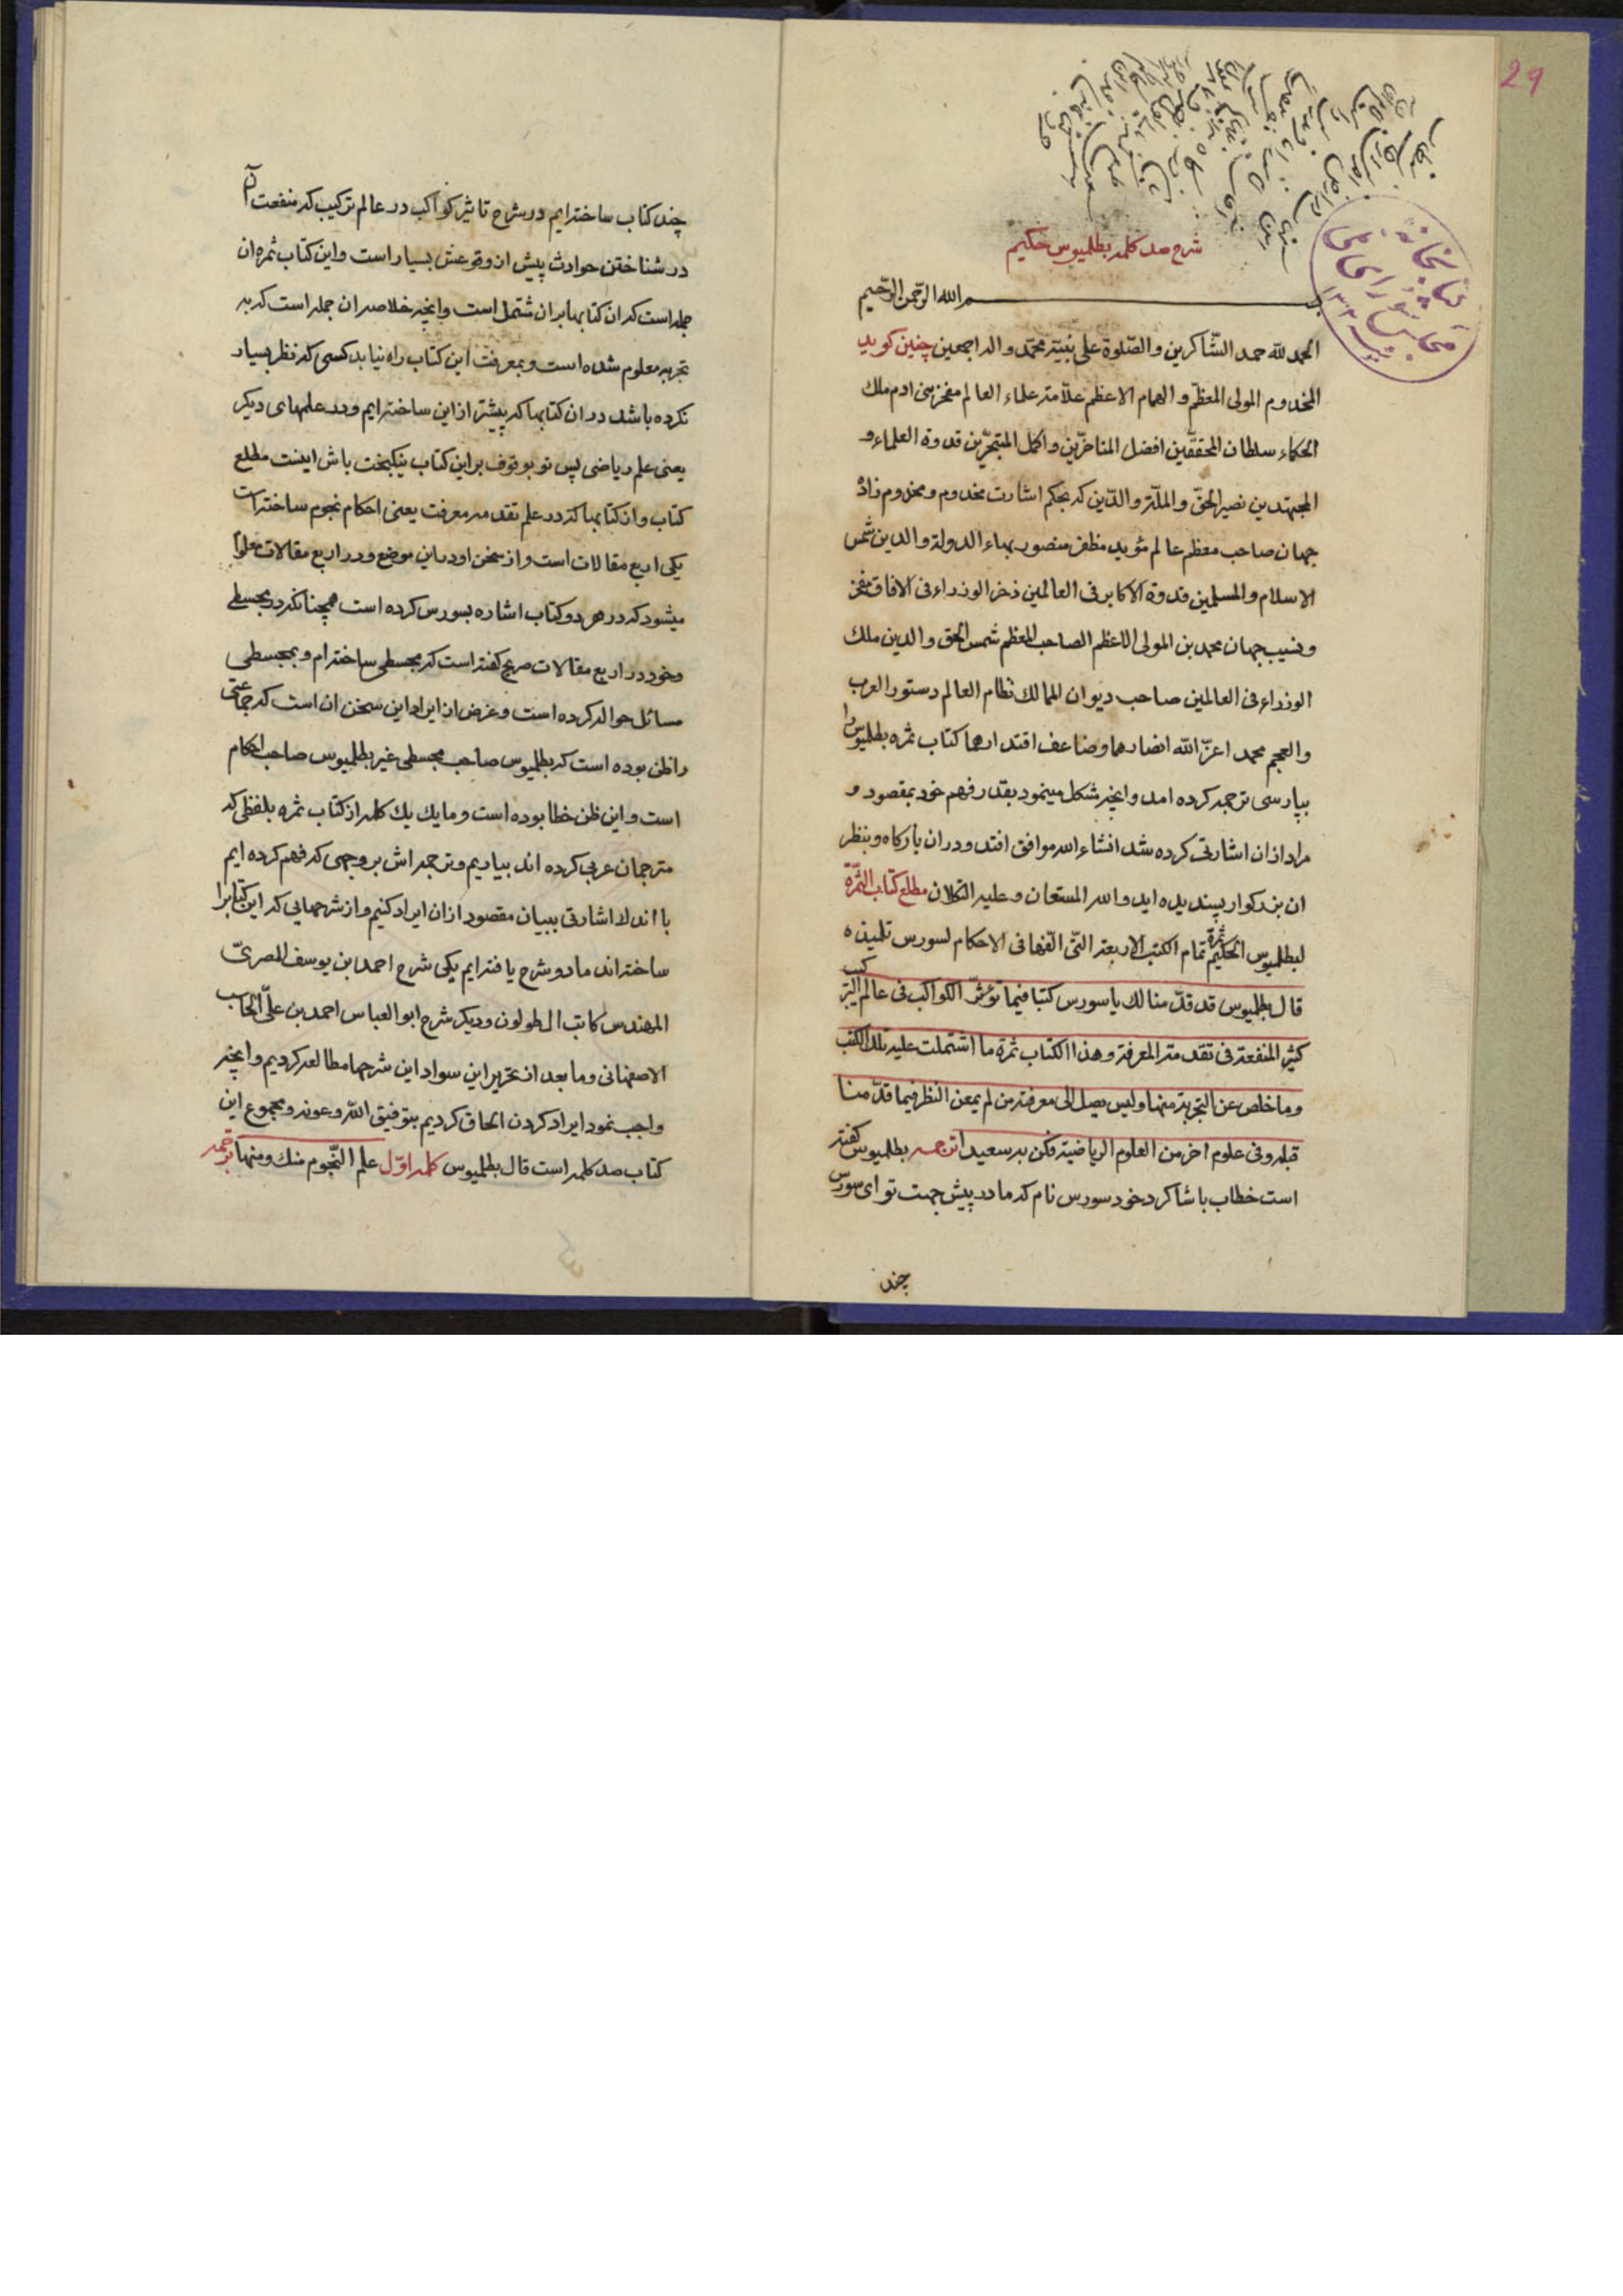 29
کتابخانه
مجلس شورای ملی
۱۳۰۲
شرح صد کلمه بطلمیوس حکیم
بسم الله الرّحمن الرّحیم
الحمد للّه حمد الشّاکرین والصّلوة علی نبیّه محمّد واله اجمعین چنین کوید
المخدوم المولی المعظّم والهمام الاعظم علّامة علماء العالم مفخر بنی ادم ملک
الحکماء سلطان المحققّین افضل المتاخرّین واکمل المتبحرّین قدوة العلماء و
المجتهدین نصیر الحقّ والملّة والدّین که بحکم اشارت مخدوم ومخدوم زادۀ
جهان صاحب معظم عالم مؤید مظفر منصور بهاء الدولة والدین شمس
الاسلام والمسلمین قدوة الاکابر فی العالمین ذخر الوزراء فی الافاق مفخر
ونسیب جهان محمد بن المولی الاعظم الصاحب المعظم شمس الحق والدین ملک
الوزراء فی العالمین صاحب دیوان الممالک نظام العالم دستور العرب
والعجم محمد اعزّ اللّه انصارهما وضاعف اقتدارهما کتاب ثمره بطلمیوس را
بپارسی ترجمه کرده امد وانچه مشکل مینمود بقدر فهم خود بمقصود و
مراد ازان اشارتی کرده شد انشاء الله موافق افتد ودران بارکاه وبنظر
ان بزرکوار پسندیده اید والله المستعان وعلیه التکلان مطلع کتاب الثمّرة
لبطلمیوس الحکیم ثمرة تمام الکتب الاربعة التّی الّفها فی الاحکام لسورس تلمیذه
قال بطلمیوس قد قدّمنا لک یا سورس کتبا فیما تؤثّر الکواکب فی عالم الترکیب
کثیر المنفعة فی تقدمة المعرفة وهذا الکتاب ثمرة ما اشتملت علیه تلک الکتب
وما خلص عن التجربة منها ولیس یصل الی معرفته من لم یمعن النظر فیما قدّمنا
قبله وفی علوم اخر من العلوم الریاضیة فکن به سعیدا ترجمه بطلمیوس کفته
است خطاب با شاکرد خود سورس نام که ما در پیش جهت تو ای سورس
چند
چند کتاب ساخته ایم در شرح تاثیر کواکب در عالم ترکیب که منفعت آن
در شناختن حوادث پیش از وقوعش بسیار است واین کتاب ثمره ان
جمله است که ان کتابها بران مشتمل است وانچه خلاصه ان جمله است که به
تجربه معلوم شده است وبمعرفت این کتاب راه نیابد کسی که نظر بسیار
نکرده باشد دران کتابها که پیشتر از این ساخته ایم ودر علمهای دیکر
یعنی علم ریاضی پس تو بوقوف بر این کتاب نیکبخت باش اینست مطلع
کتاب واز کتابها که در علم تقدمه معرفت یعنی احکام نجوم ساخته است
یکی اربع مقالات است واز سخن او در این موضع ودر اربع مقالات معلوم
میشود که در هر دو کتاب اشاره بسورس کرده است همچنانکه در مجسطی
وخود در اربع مقالات صریح کفته است که مجسطی ساخته ام وبمجسطی
مسائل حواله کرده است وغرض از ایراد این سخن ان است که جماعتی
را ظن بوده است که بطلمیوس صاحب مجسطی غیر بطلمیوس صاحب احکام
است واین ظن خطا بوده است وما یک یک کلمه از کتاب ثمره بلفظی که
مترجمان عربی کرده اند بیاریم وترجمه اش بر وجهی که فهم کرده ایم
با اندک اشارتی ببیان مقصود ازان ایراد کنیم واز شرحهایی که این کتابرا
ساخته اند ما دو شرح یافته ایم یکی شرح احمد بن یوسف المصریّ
المهندس کاتب ال طولون ودیکر شرح ابو العباس احمد بن علیّ الحاسب
الاصفهانی وما بعد از تحریر این سواد این شرحها مطالعه کردیم وانچه
واجب نمود ایراد کردن الحاق کردیم بتوفیق اللّه وعونه ومجموع این
کتاب صد کلمه است قال بطلمیوس کلمه اوّل علم النّجوم منک ومنها ترجمه